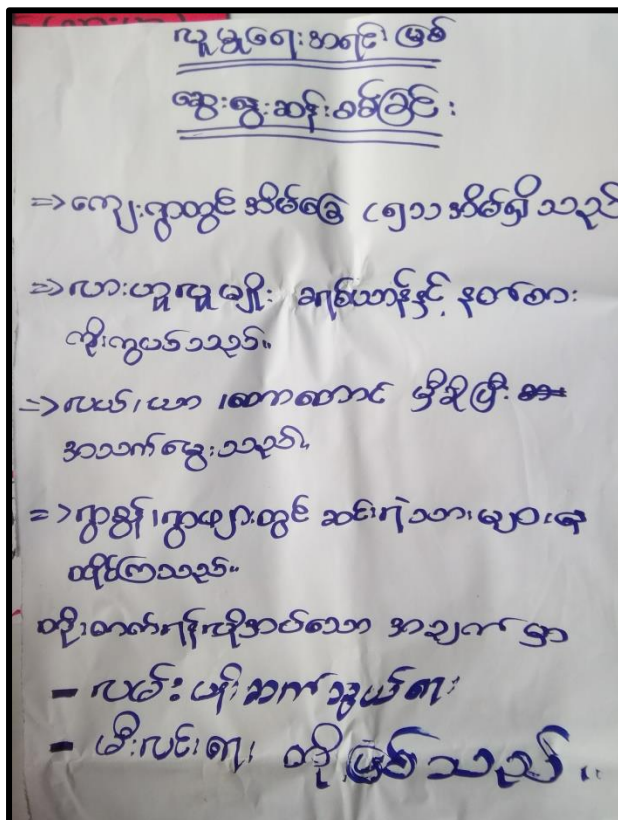 လူမှုရေးအရင်းမြစ်
ဆွေးနွေးဆန်းစစ်ခြင်း
=> ကျေးရွာတွင် အိမ်ခြေ ၄၅၁ အိမ်ရှိသည်
=> လားဟူလူမျိုး ခရစ်ယာန်နှင့် နတ်စား
ကိုးကွယ်သည်။
=> လယ်၊ ယာ ၊ တောတောင် မှီခိုပြီး
အသက်မွေးသည်။
=> ရွာစွန်၊ ရွာဖျားတွင် ဆင်းရဲသားများနေ
ထိုင်ကြသည်။
တိုးတက်ရန်လိုအပ်သော အချက်မှာ
- လမ်းပန်းဆက်သွယ်ရေး
- မီးလင်းရေး တို့ဖြစ်သည်။